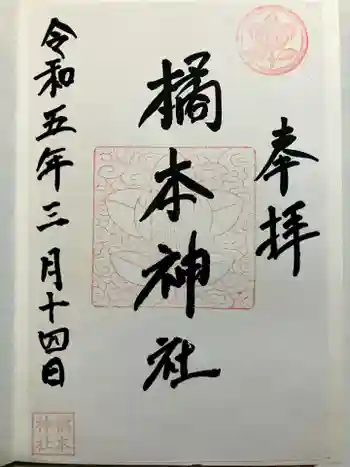 奉拝
橘本神社
令和五年三月十四日
橘本
神社